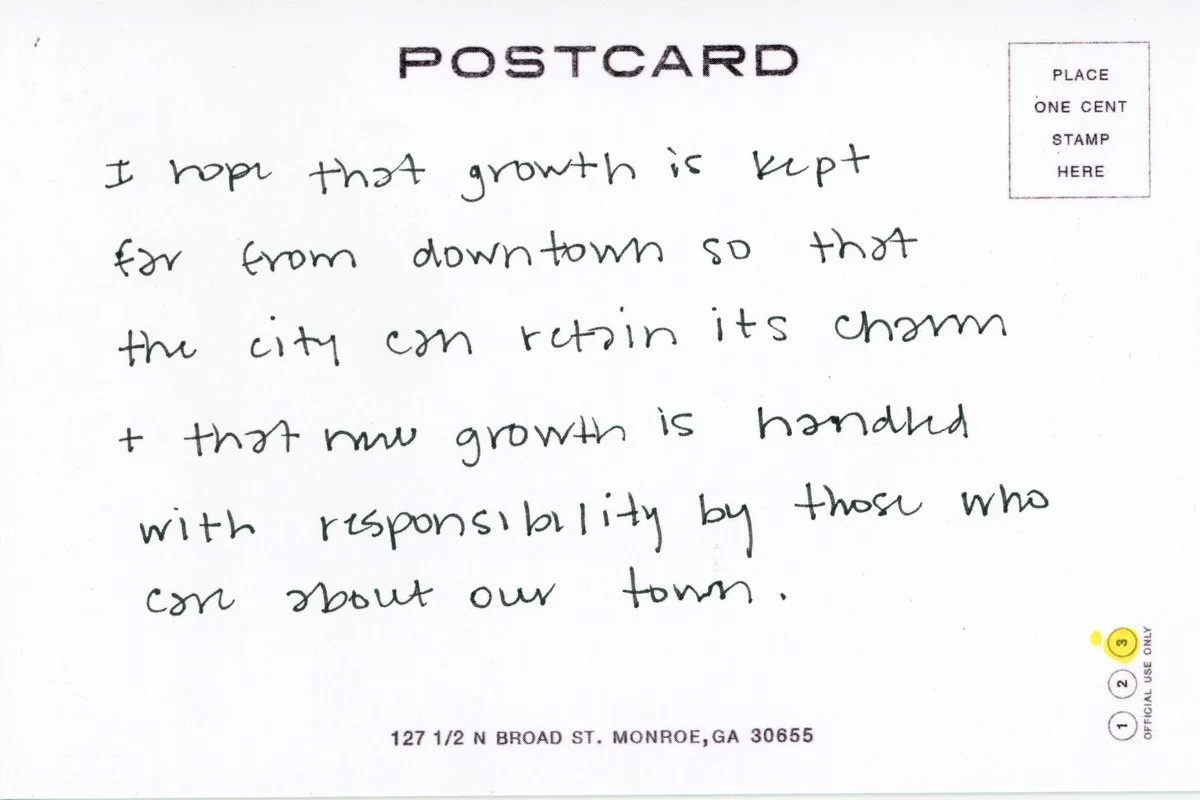 POSTCARD
PLACE
ONE CENT
STAMP
HERE
I hope that growth is kept
far from downtown so that
the city can retain its charm
+ that new growth is handled
with responsibility by those who
care about our town.
1 2 3
OFFICIAL USE ONLY
127 1/2 N BROAD ST. MONROE, GA 30655